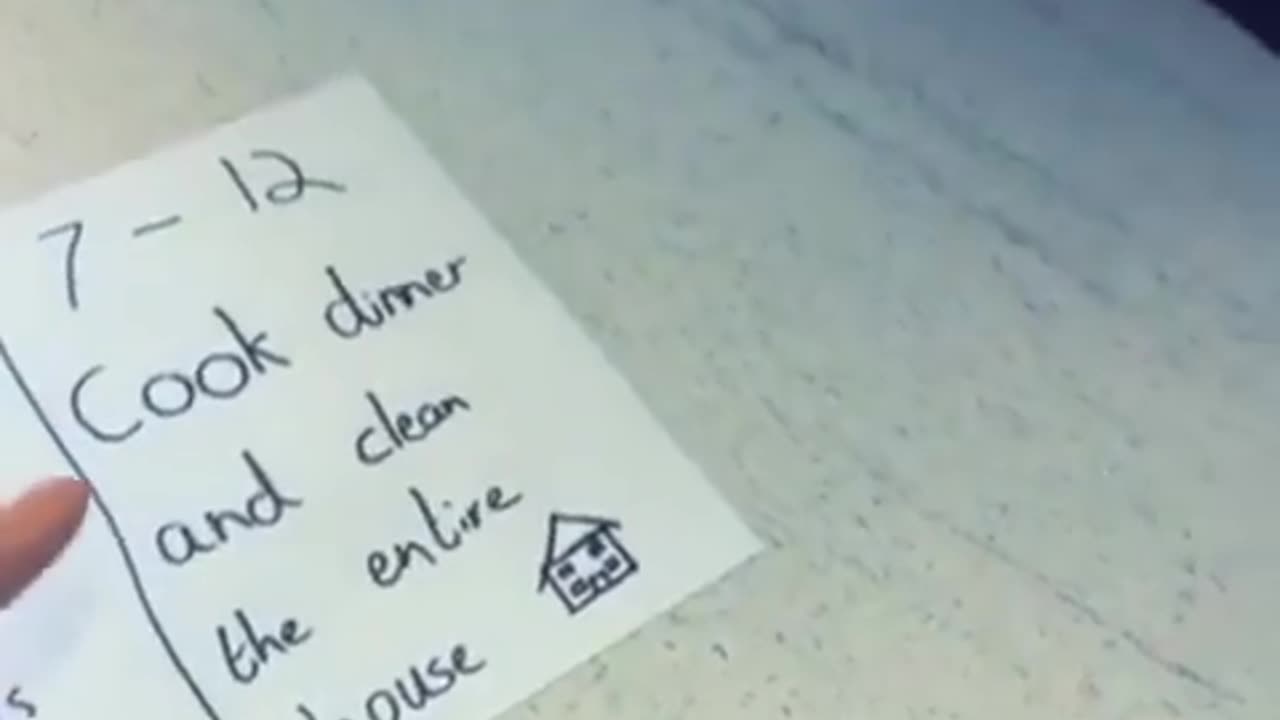 7 - 12
Cook dinner
and clean
the entire
house
s